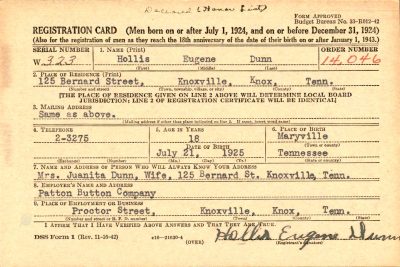 Deceased (Honor List)
FORM APPROVED
Budget Bureau No. 33-R012-42
REGISTRATION CARD (Men born on or after July 1, 1924, and on or before December 31, 1924)
(Also for the registration of men as they reach the 18th anniversary of the date of their birth on or after January 1, 1943.)
SERIAL NUMBER 1. NAME (Print) ORDER NUMBER
W 323 Hollis Eugene Dunn 14,046
(First) (Middle) (Last)
2. PLACE OF RESIDENCE (Print)
125 Bernard Street, Knoxville, Knox, Tenn.
(Number and street) (Town, township, village, or city) (County) (State)
[THE PLACE OF RESIDENCE GIVEN ON LINE 2 ABOVE WILL DETERMINE LOCAL BOARD
JURISDICTION; LINE 2 OF REGISTRATION CERTIFICATE WILL BE IDENTICAL]
3. MAILING ADDRESS
Same as above.
[Mailing address if other than place indicated on line 2. If same, insert word same]
4. TELEPHONE 5. AGE IN YEARS 6. PLACE OF BIRTH
2-3275 18 Maryville
DATE OF BIRTH (Town or county)
July 21, 1925 Tennessee
(Exchange) (Number) (Mo.) (Day) (Yr.) (State or country)
7. NAME AND ADDRESS OF PERSON WHO WILL ALWAYS KNOW YOUR ADDRESS
Mrs. Juanita Dunn, Wife, 125 Bernard St. Knoxville, Tenn.
8. EMPLOYER'S NAME AND ADDRESS
Patton Button Company
9. PLACE OF EMPLOYMENT OR BUSINESS
Proctor Street, Knoxville, Knox, Tenn.
(Number and street or R. F. D. number) (Town) (County) (State)
I AFFIRM THAT I HAVE VERIFIED ABOVE ANSWERS AND THAT THEY ARE TRUE.
DSS Form 1 (Rev. 11-16-42) (OVER) Hollis Eugene Dunn
(Registrant's signature)